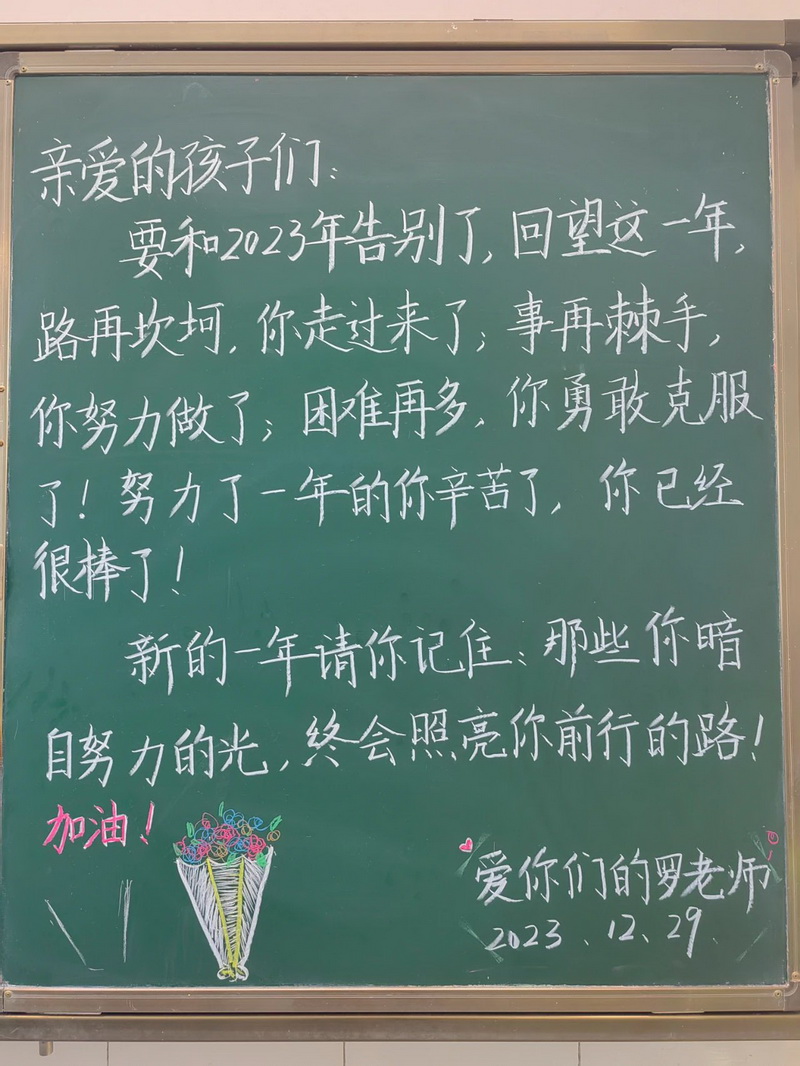 亲爱的孩子们:
要和2023年告别了,回望这一年,
路再坎坷,你走过来了;事再棘手,
你努力做了;困难再多,你勇敢克服
了!努力了一年的你辛苦了,你已经
很棒了!
新的一年请你记住:那些你暗
自努力的光,终会照亮你前行的路!
加油!
爱你们的罗老师
2023、12、29.